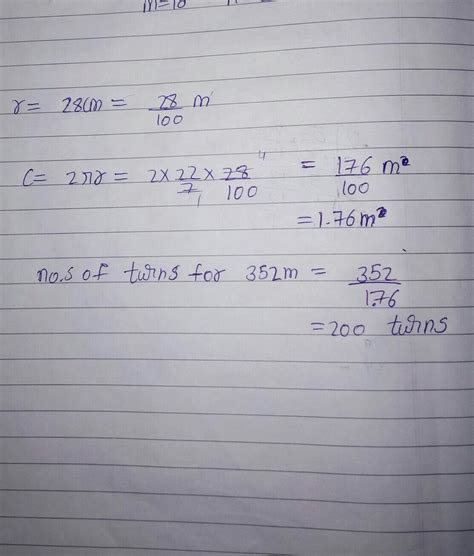 r = 28cm = 28/100 m
C = 2πr = 2 × 22/7 × 28/100 = 176/100 m²
= 1.76 m²
no.s of turns for 352m = 352/1.76
= 200 turns